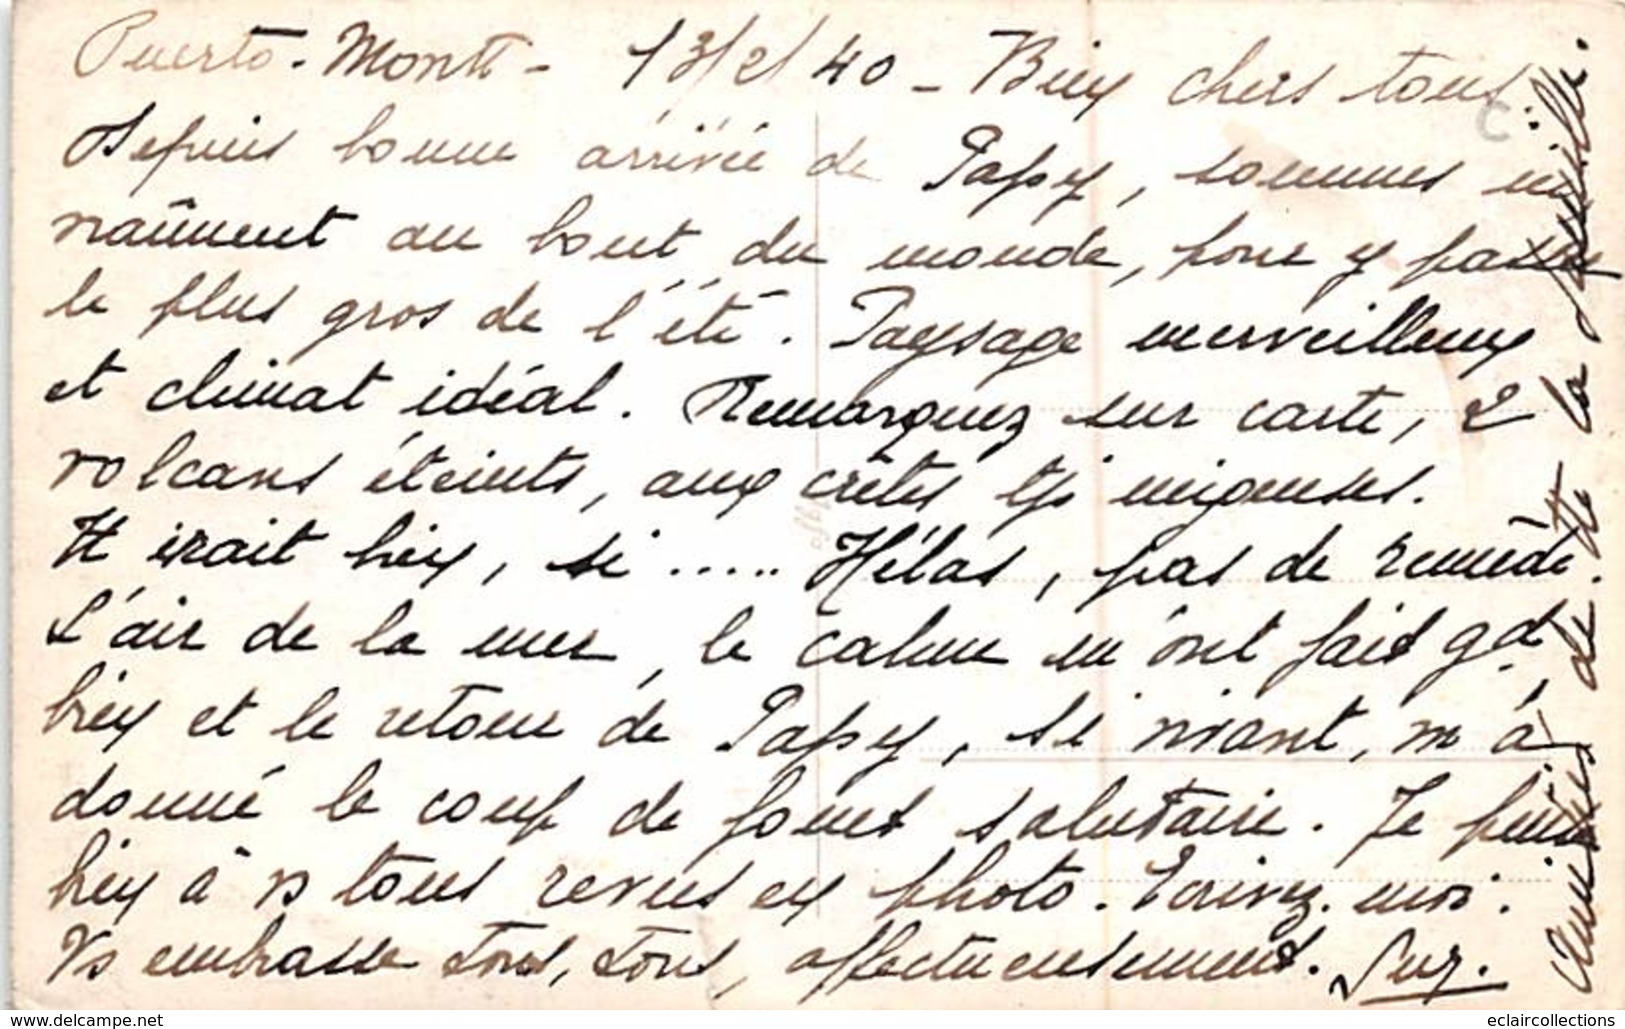 Puerto-Montt - 13/2/40 - Bien chers tous.
Depuis bonne arrivée de Papy, sommes
vraiment au bout du monde, pour y passer
le plus gros de l'été. Paysage merveilleux
et climat idéal. Remarquez sur carte, 2
volcans éteints, aux crêtes tjs neigeuses.
Tt irait bien, si ..... Hélas, pas de remède.
L'air de la mer, le calme m'ont fait gd
bien et le retour de Papy, si vivant, m'a
donné le coup de fouet salutaire. Je pense
bien à vs tous revus en photo. Ecrivez-moi.
Vs embrasse tous, tous, affectueusement. Suz.
Amitiés de tte la famille.
www.delcampe.net
eclaircollections